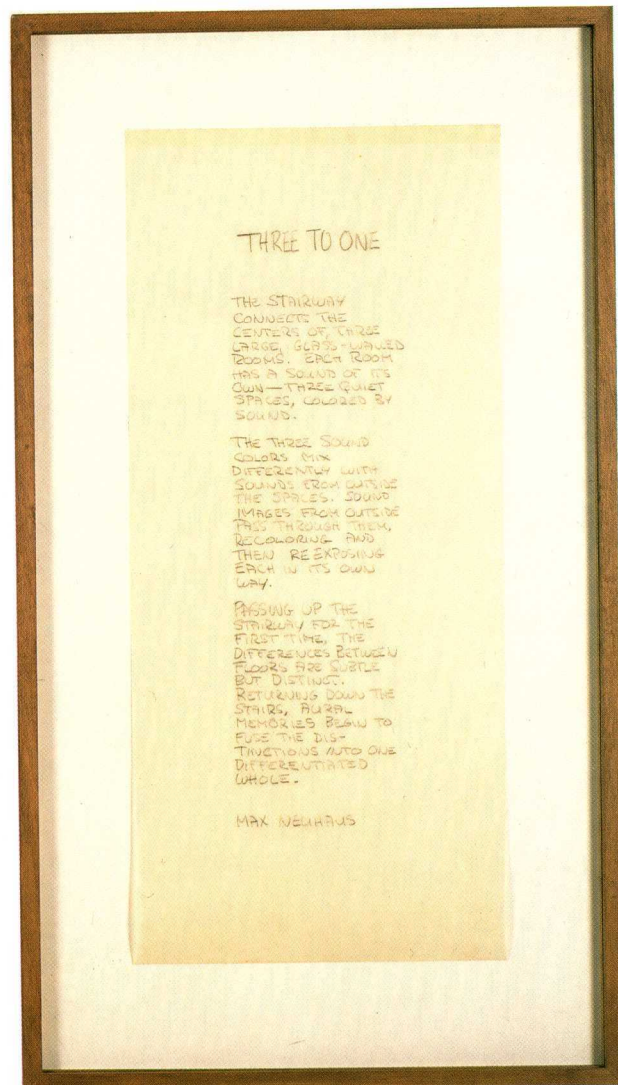 THREE TO ONE
THE STAIRWAY
CONNECTS THE
CENTERS OF THREE
LARGE, GLASS-WALLED
ROOMS. EACH ROOM
HAS A SOUND OF ITS
OWN—THREE QUIET
SPACES, COLORED BY
SOUND.
THE THREE SOUND
COLORS MIX
DIFFERENTLY WITH
SOUNDS FROM OUTSIDE
THE SPACES. SOUND
IMAGES FROM OUTSIDE
PASS THROUGH THEM,
RECOLORING AND
THEN REEXPOSING
EACH IN ITS OWN
WAY.
PASSING UP THE
STAIRWAY FOR THE
FIRST TIME, THE
DIFFERENCES BETWEEN
FLOORS ARE SUBTLE
BUT DISTINCT.
RETURNING DOWN THE
STAIRS, AURAL
MEMORIES BEGIN TO
FUSE THE DIS-
TINCTIONS INTO ONE
DIFFERENTIATED
WHOLE.
MAX NEUHAUS